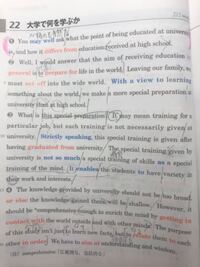 22 大学で何を学ぶか
❶ You may well ask what the point of being educated at university
is, and how it differs from education received at high school.
❷ Well, I would answer that the aim of receiving education in
general is to prepare for life in the world. Leaving our family, we
must set out into the wide world. With a view to learning
something about the world, we make a more special preparation at
university than at high school.
❸ What is this special preparation? It may mean training for a
particular job, but such training is not necessarily given at
university. Strictly speaking, this special training is given after
having graduated from university. The special training given by
university is not so much a special training of skills as a special
training of the mind. It enables the students to have variety in
their work and interests.
❹ The knowledge provided by university should not be too broad,
or else the knowledge gained there will be shallow. However, it
should be "comprehensive" enough to enrich the mind by getting in
contact with the outside world and with other minds. The purpose
of this study isn't just to learn new facts, but to relate them to each
other in order. We have to aim at understanding and wisdom.